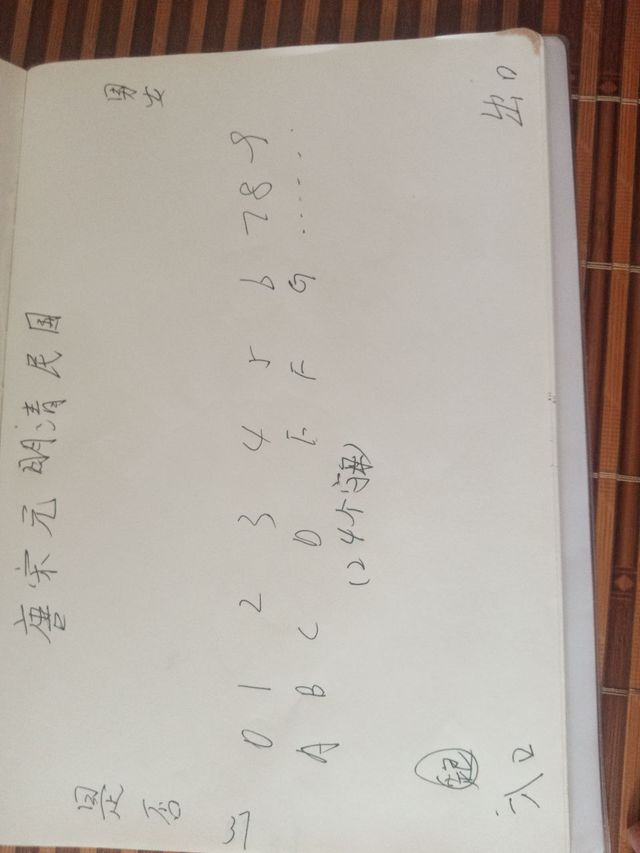 唐宋元明清民国
男女
是
否
0 1 2 3 4 5 6 7 8 9
A B C D E F G ......
(24个字母)
出口